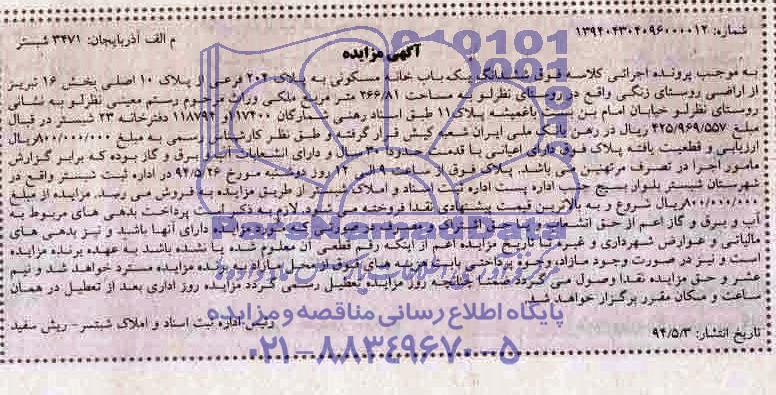 شماره: ۱۳۹۴۰۴۳۰۴۰۹۶۰۰۰۰۱۲
م الف آذربایجان: ۳۴۷۱ شبستر
آگهی مزایده
به موجب پرونده اجرائی کلاسه فوق ششدانگ یکباب خانه مسکونی به پلاک ۲۰۲ فرعی از پلاک ۱۰ اصلی بخش ۱۶ تبریز
از اراضی روستای زنگی واقع در روستای نظرلو به مساحت ۲۶۶/۸۱ متر مربع ملکی وراث مرحوم رستم معینی نظرلو به نشانی
روستای نظرلو خیابان امام بن بست باغمیشه پلاک ۱۱ طبق اسناد رهنی شمارگان ۱۱۷۴۰۰ و ۱۱۸۷۹۴ دفترخانه ۲۳ شبستر در قبال
مبلغ ۴۲۵/۹۶۹/۵۵۷ ریال در رهن بانک ملی ایران شعبه کیش قرار گرفته و طبق نظر کارشناس رسمی به مبلغ ۸۰۰/۰۰۰/۰۰۰ ریال
ارزیابی و قطعیت یافته پلاک فوق دارای اعیانی با قدمت حدود ۳۰ سال و دارای انشعابات آب و برق و گاز بوده که برابر گزارش
مامور اجرا در تصرف مرتهنین می باشد. پلاک فوق از ساعت ۹ الی ۱۲ روز دوشنبه مورخ ۹۴/۵/۲۶ در اداره ثبت شبستر واقع در
شهرستان شبستر بلوار بسیج جنب اداره پست اداره ثبت اسناد و املاک شبستر از طریق مزایده به فروش می رسد. مزایده از مبلغ
۸۰۰/۰۰۰/۰۰۰ ریال شروع و به بالاترین قیمت پیشنهادی نقدا فروخته می شود. لازم به ذکر است پرداخت بدهی های مربوط به
آب و برق و گاز اعم از حق انشعاب و یا حق اشتراک و مصرف در صورتی که مورد مزایده دارای آنها باشد و نیز بدهی های
مالیاتی و عوارض شهرداری و غیره تا تاریخ مزایده اعم از اینکه رقم قطعی آن معلوم شده یا نشده باشد به عهده برنده مزایده
است و نیز در صورت وجود مازاد، وجوه پرداختی بابت هزینه های فوق از محل مازاد به برنده مزایده مسترد خواهد شد و نیم
عشر و حق مزایده نقدا وصول می گردد ضمنا چنانچه روز مزایده تعطیل رسمی گردد مزایده روز اداری بعد از تعطیل در همان
ساعت و مکان مقرر برگزار خواهد شد.
رئیس اداره ثبت اسناد و املاک شبستر - ریش سفید
تاریخ انتشار: ۹۴/۵/۳
پایگاه اطلاع رسانی مناقصه و مزایده
۰۲۱-۸۸۳۴۹۶۷۰-۵